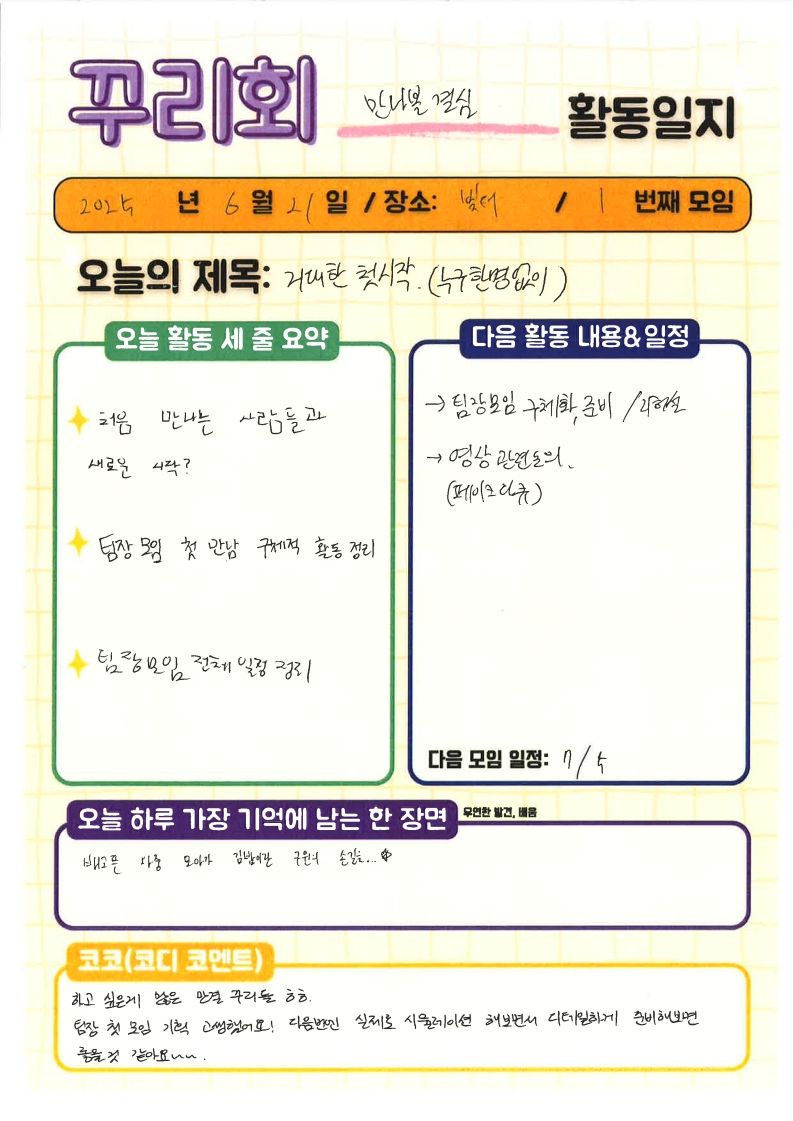 꾸리회 만나볼 결심 활동일지
2025 년 6 월 21 일 / 장소: 빛터 / 1 번째 모임
오늘의 제목: 거대한 첫시작. (누구한명없이)
오늘 활동 세 줄 요약
처음 만나는 사람들과
새로운 시작?
팀장 모임 첫 만남 구체적 활동 정리
팀장모임 전체 일정 정리
다음 활동 내용&일정
→ 팀장모임 구체화, 준비 / 리허설
→ 영상 관련논의.
(페이크다큐)
다음 모임 일정: 7/5
오늘 하루 가장 기억에 남는 한 장면 우연한 발견, 배움
배고픈 와중 모아가 김밥이란 구원의 손길을...
코코(코디 코멘트)
하고 싶은게 많은 만결 꾸리들 ㅎㅎ.
팀장 첫 모임 기획 고생했어요! 다음번엔 실제로 시뮬레이션 해보면서 디테일하게 준비해보면
좋을것 같아요~~.